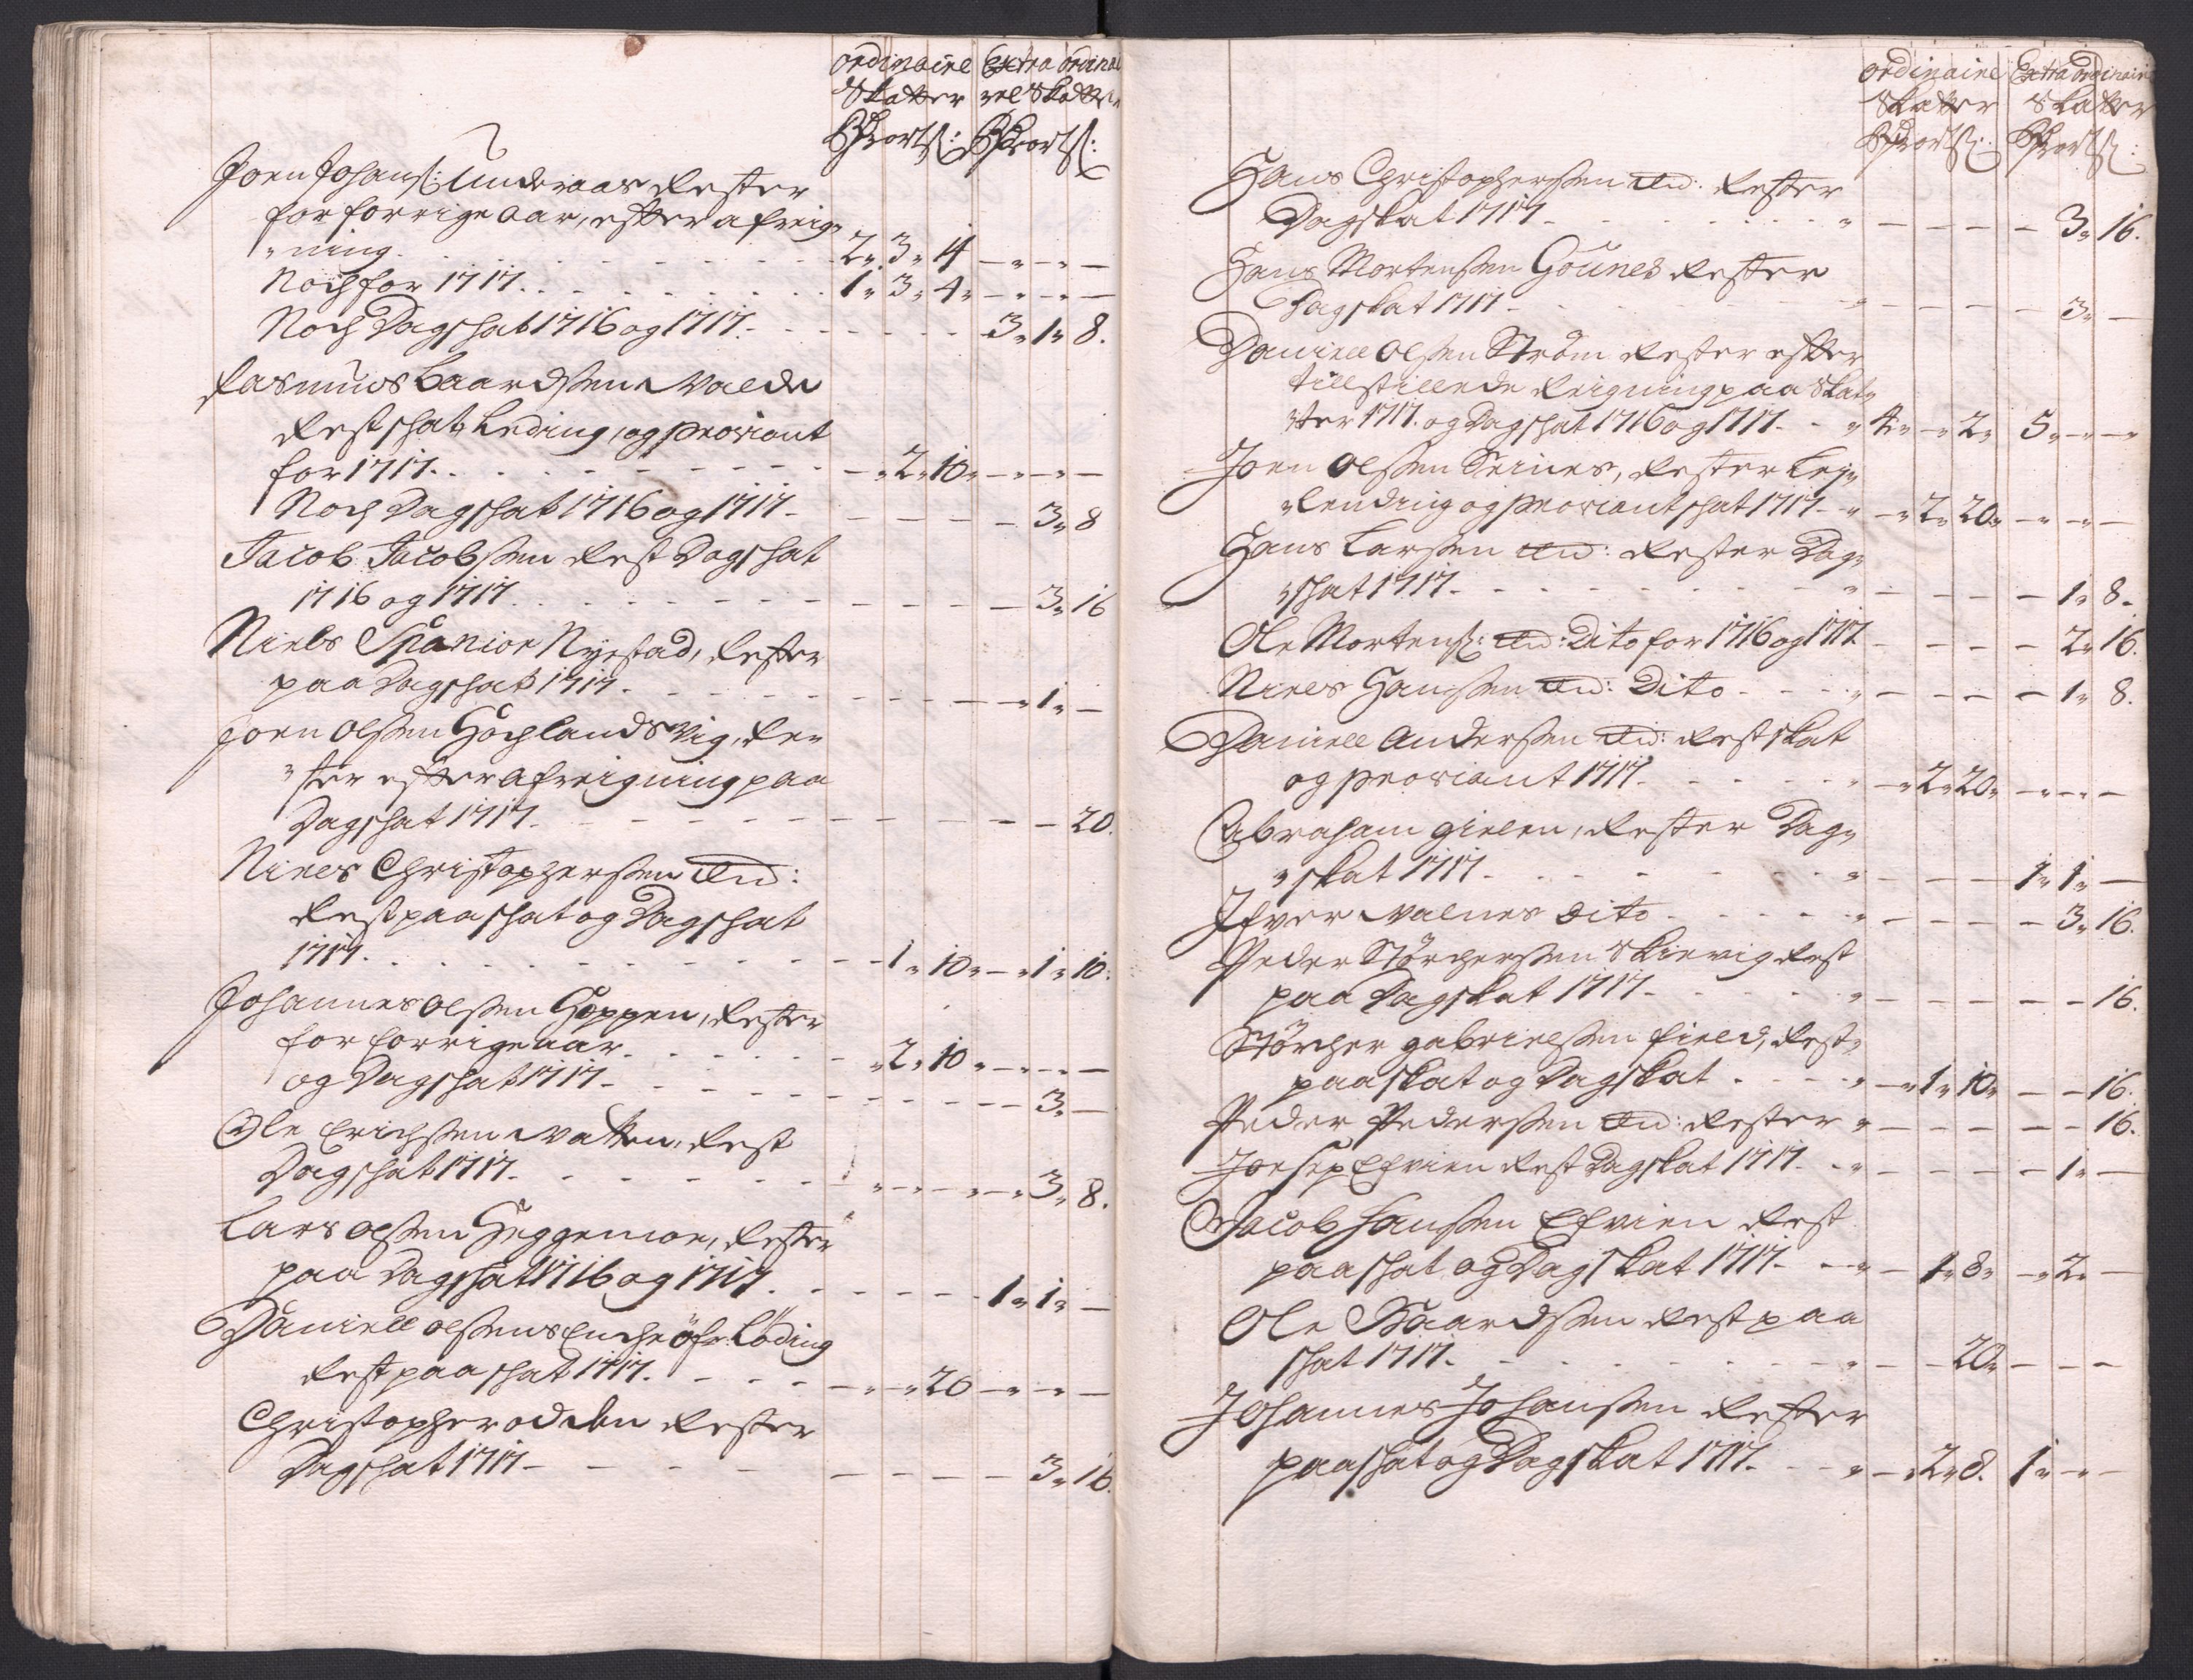 ordinaire Extra ordinai
Skatter rel Skatter
Joen Johanß: Underaas Rester
for forrige aar, efter afreig„
„ning. 2„ 3„ 4 — „ — „ —
Noch for 1717. 1„ 3„ 4„ — „ — „ —
Noch Dagschat 1716 og 1717. 3„ 1„ 8.
Rasmus Baardßen Valde
Rest schat Leding, og Proviant
for 1717. — „ 2„ 10„ — „ — „ —
Noch Dagschat 1716 og 1717 — 3„ 8
Jacob Jacobßen Rest Dagschat
1716 og 1717. — 3„ 16
Niels Spanior Nyestad, Rester
paa Dagschat 1717. — 1„ —
Joen Olßen Hochlandsvig, Re„
„ster efter afreigning paa
Dagschat 1717. — 20.
Niels Christopherßen ibid:
Rest paa schat og Dagschat
1717. — 1„ 10„ — „ 1„ 10.
Johannes Olßen Hoppen, Rester
for forrige aar. „ 2„ 10„ — „ — „ —
og Dagschat 1717. — 3„ —
Ole Erichßen Vatten, Rest
Dagschat 1717. — 3„ 8.
Lars Olßen Heggemoe, Rester
paa Dagschat 1716 og 1717. 1„ 1„ —
Daniell Olßens Enche öfr: Löding
Rest paa schat 1717. — „ „ 20 — „ — „ —
Christopher Odden Rester
Dagschat 1717 — 3„ 16.
ordinaire Extra ordinair
Skatter Skatter
Hans Christopherßen ibid: Rester
Dagskat 1717. — 3„ 16.
Hans Mortenßen Godnes Rester
Dagskat 1717 — 3„ —
Daniell Olßen Ström Rester efter
tillstillede Reigning paa Skat„
„ter 1717. og Dagschat 1716 og 1717. „ 4„ — „ 2„ 5„ — „ — „
Joen Olßen Seines, Rester Ley„
„Lending og Proviantschat 1717. „ — „ 2„ 20„ — „ — „ —
Hans Larßen ibid: Rester Dag„
„schat 1717. — 1„ 8.
Ole Mortenß: ibid: Dito for 1716 og 1717 — 2„ 16.
Niels Hanßen ibid: Dito — 1„ 8.
Daniell Anderßen ibid: Rest skat
og Proviant 1717. — „ 2„ 20„ — „ — „ —
Abraham Gieleen, Rester Dag„
„skat 1717. — 1„ 1„ —
Ifver Valnes Dito — 3„ 16.
Peder Störcherßen Skievig Rest
paa Dagskat 1717. — 16.
Störcher Gabrielßen Field, Rest„
paa skat og Dagskat. — „ 1„ 10„ — — 16.
Peder Pederßen ibid: Rester „ — 16.
Joesep Efvien Rest Dagskat 1717. — 1„ —
Jacob Hanßen Efvien Rest
paa schat og Dagskat 1717. — „ — 1„ 8„ — „ 2„ —
Ole Baardßen Rest paa
schat 1717. — 20„ — — —
Johannes Johanßen Rester
paa schat og Dagskat 1717. „ — „ 2„ 8. 1„ — „ —